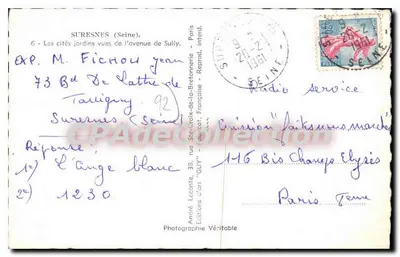 SURESNES (Seine).
6 - Les cités jardins vues de l'avenue de Sully.
EXP. M. FICHOU Jean
73 Bd De Lattre de
Tassigny
92
Suresnes (Seine)
Réponse :
1°) L'Ange blanc
2°) 1230
André Leconte, 38, rue Ste-Croix-de-la-Bretonnerie - Paris
Editions d'Art "GUY" - Fabricat. Française - Reprod. interd.
Photographie Véritable
SEINE
1961
SEINE
Radio service
Emission "faites vous marché
116 Bis Champs Elysées
Paris 8eme
PADeCollection